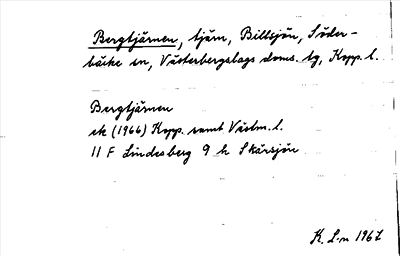 Bergtjärnen, tjärn, Billsjön, Söder-
bärke sn, Västerbergslags doms. tg, Kopp. l.
Bergtjärnen
ek (1966) Kopp. samt Västm. l.
11 F Lindesberg 9 h Skärsjön
K. L-n 1967